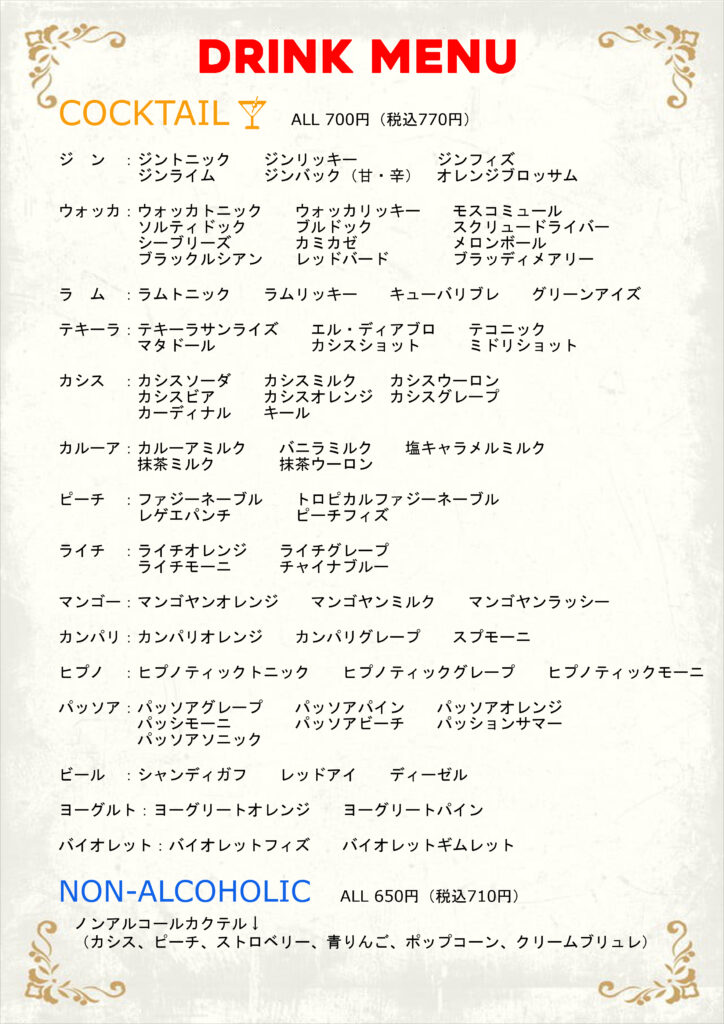 DRINK MENU
COCKTAIL ALL 700円（税込770円）
ジン：ジントニック ジンリッキー ジンフィズ
ジンライム ジンバック（甘・辛） オレンジブロッサム
ウォッカ：ウォッカトニック ウォッカリッキー モスコミュール
ソルティドック ブルドック スクリュードライバー
シーブリーズ カミカゼ メロンボール
ブラックルシアン レッドバード ブラッディメアリー
ラム：ラムトニック ラムリッキー キューバリブレ グリーンアイズ
テキーラ：テキーラサンライズ エル・ディアブロ テコニック
マタドール カシスショット ミドリショット
カシス：カシスソーダ カシスミルク カシスウーロン
カシスビア カシスオレンジ カシスグレープ
カーディナル キール
カルーア：カルーアミルク バニラミルク 塩キャラメルミルク
抹茶ミルク 抹茶ウーロン
ピーチ：ファジーネーブル トロピカルファジーネーブル
レゲエパンチ ピーチフィズ
ライチ：ライチオレンジ ライチグレープ
ライチモーニ チャイナブルー
マンゴー：マンゴヤンオレンジ マンゴヤンミルク マンゴヤンラッシー
カンパリ：カンパリオレンジ カンパリグレープ スプモーニ
ヒプノ：ヒプノティックトニック ヒプノティックグレープ ヒプノティックモーニ
パッソア：パッソアグレープ パッソアパイン パッソアオレンジ
パッシモーニ パッソアピーチ パッションサマー
パッソアソニック
ビール：シャンディガフ レッドアイ ディーゼル
ヨーグルト：ヨーグリートオレンジ ヨーグリートパイン
バイオレット：バイオレットフィズ バイオレットギムレット
NON-ALCOHOLIC ALL 650円（税込710円）
ノンアルコールカクテル↓
（カシス、ピーチ、ストロベリー、青りんご、ポップコーン、クリームブリュレ）